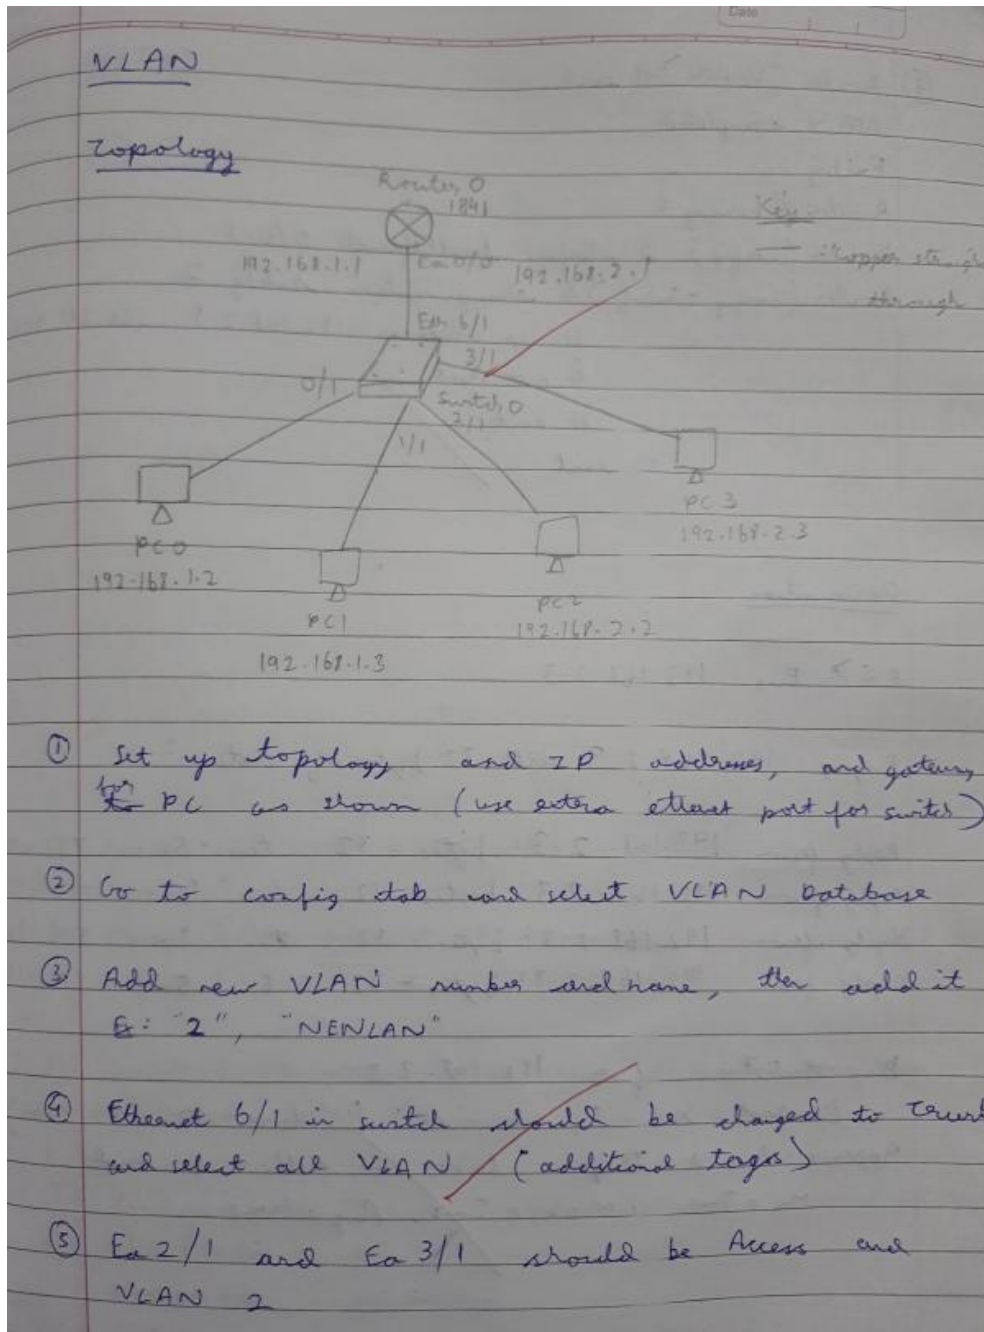 Date
VLAN
Topology
Router 0
1841
Key
192.168.1.1
Ea 0/0
192.168.2.1
: copper straig
through
Eth 6/1
3/1
0/1
Switch 0
2/1
1/1
PC 3
192.168.2.3
PC 0
192.168.1.2
PC 1
PC 2
192.168.2.2
192.168.1.3
① Set up topology and IP addresses, and gateway
for PC as shown (use extra ethernet port for switch)
② Go to config tab and select VLAN Database
③ Add new VLAN number and name, then add it
E: "2", "NEWLAN"
④ Ethernet 6/1 in switch should be changed to Trunk
and select all VLAN (additional tags)
⑤ Ea 2/1 and Ea 3/1 should be Access and
VLAN 2